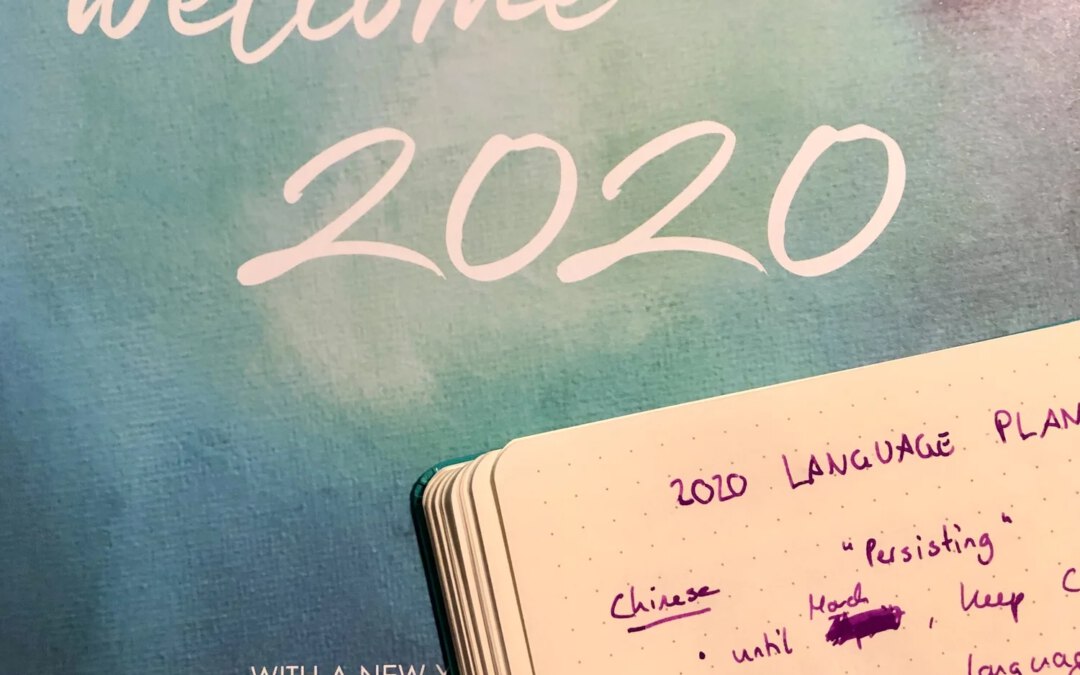 welcome
2020
WITH A NEW Y
2020 LANGUAGE PLAN
"Persisting"
Chinese
March
• until , keep C
langua